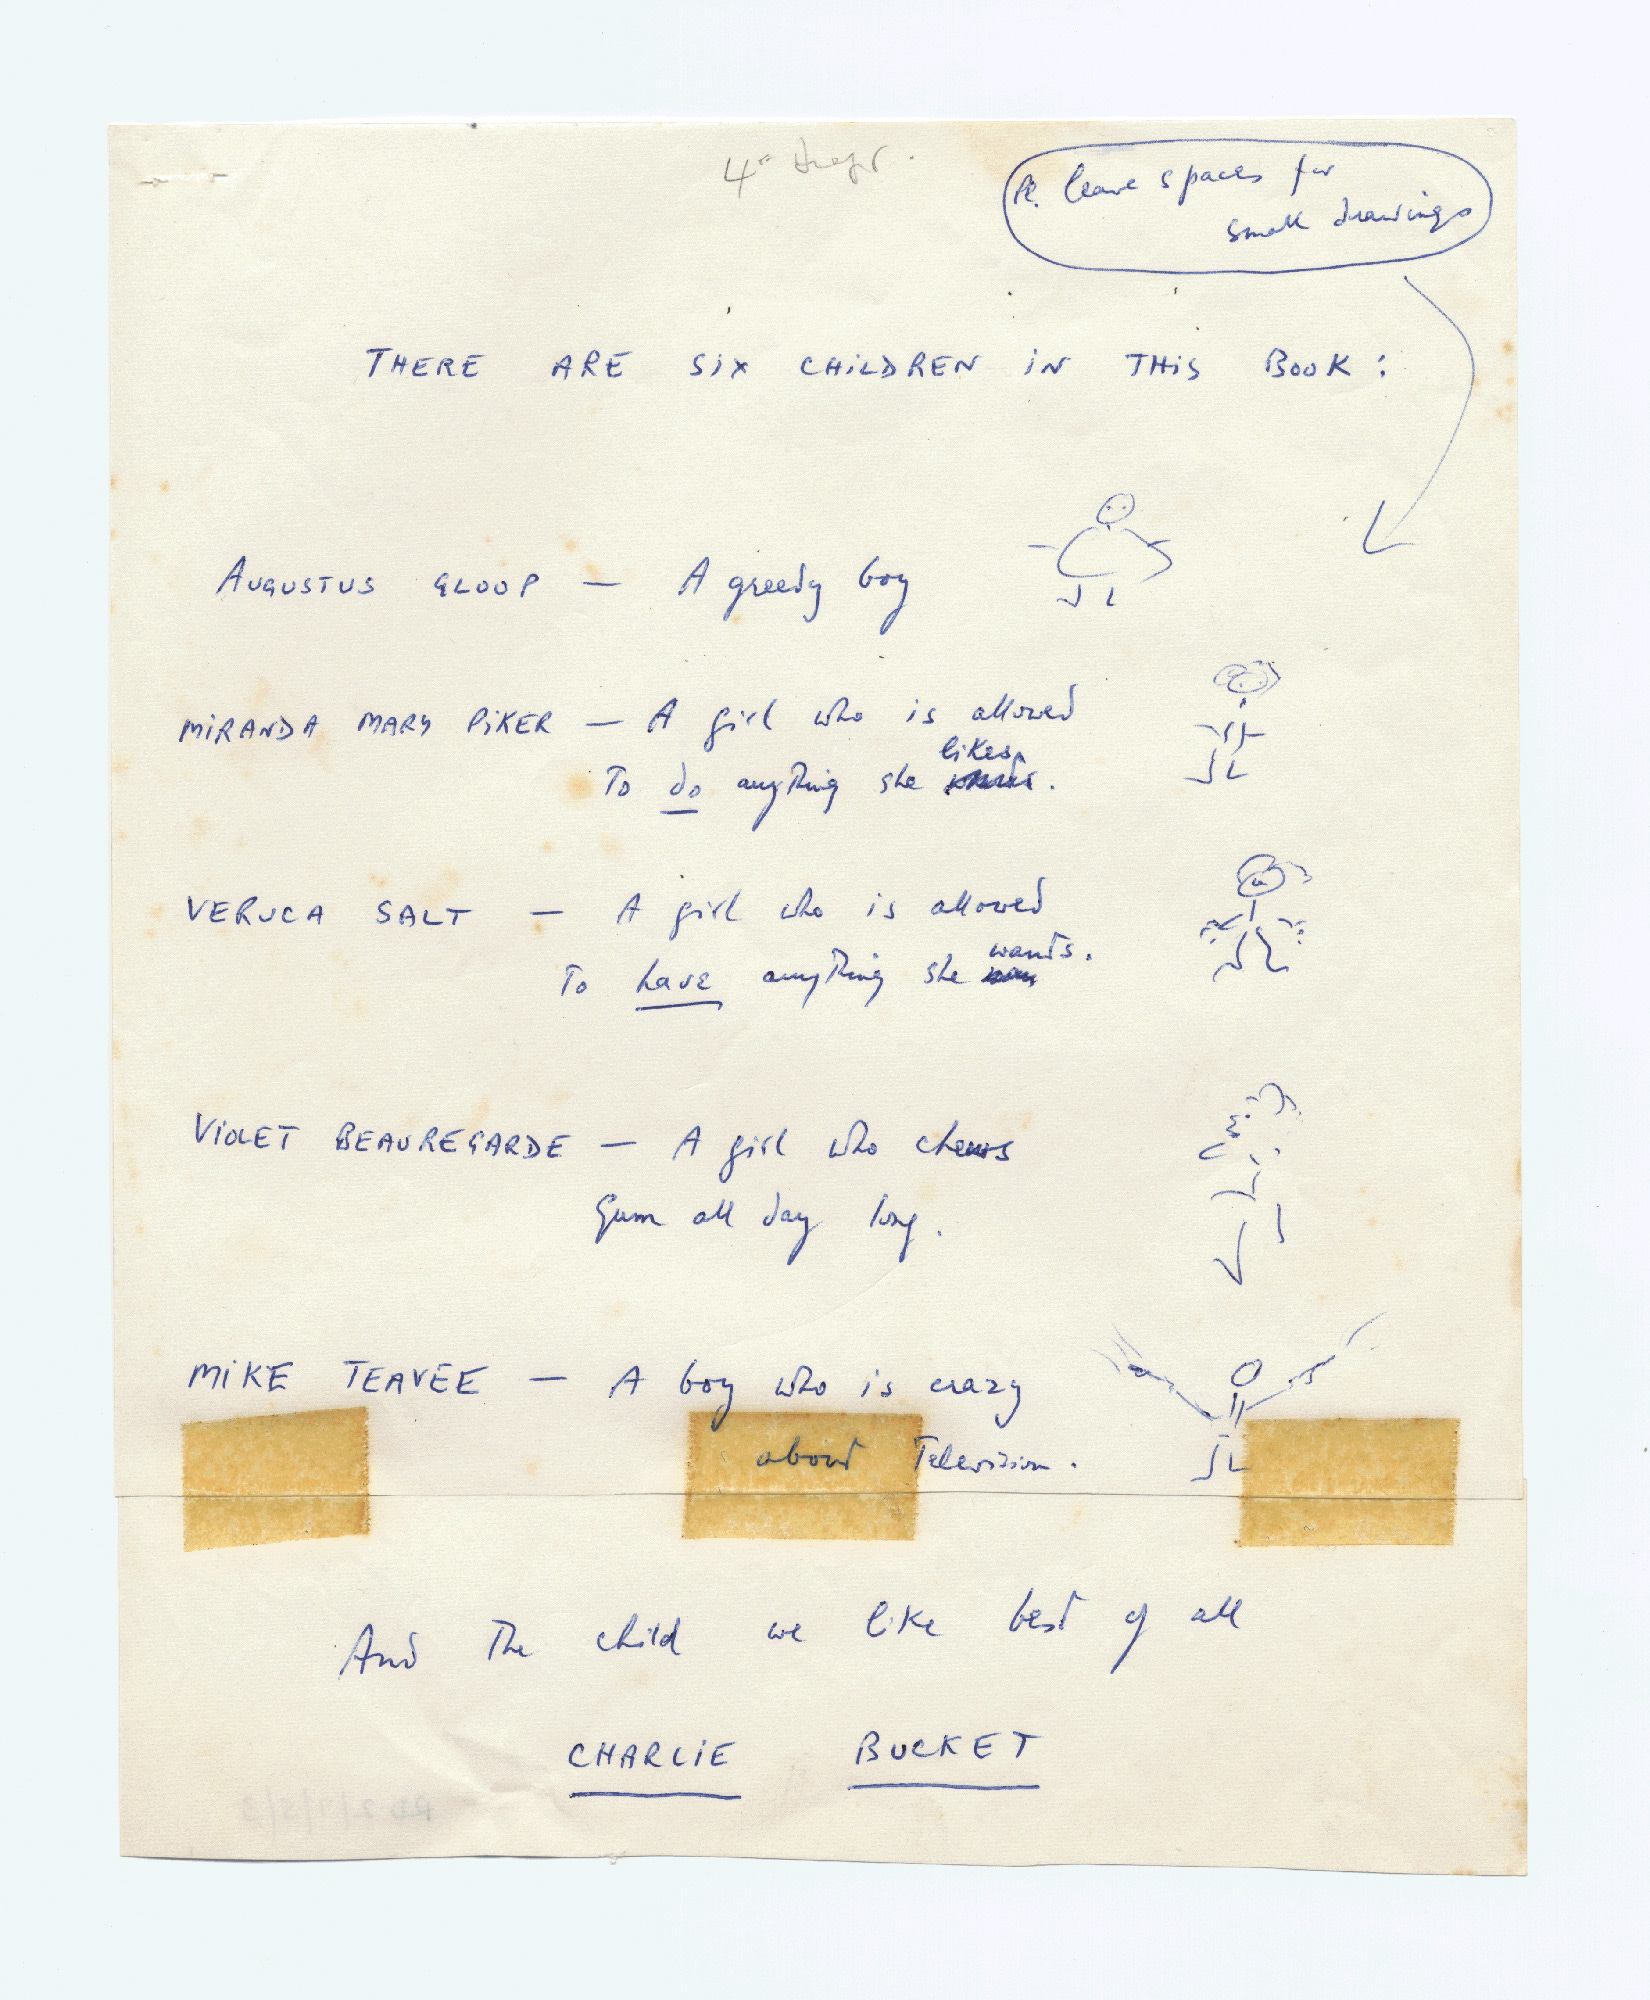 4th draft.
Pl. leave spaces for
small drawings
THERE ARE SIX CHILDREN IN THIS BOOK:
AUGUSTUS GLOOP — A greedy boy
MIRANDA MARY PIKER — A girl who is allowed
likes
To do anything she .
VERUCA SALT — A girl who is allowed
wants.
To have anything she
VIOLET BEAUREGARDE — A girl who chews
Gum all day long.
MIKE TEAVEE — A boy who is crazy
about Television.
And The child we like best of all
CHARLIE BUCKET